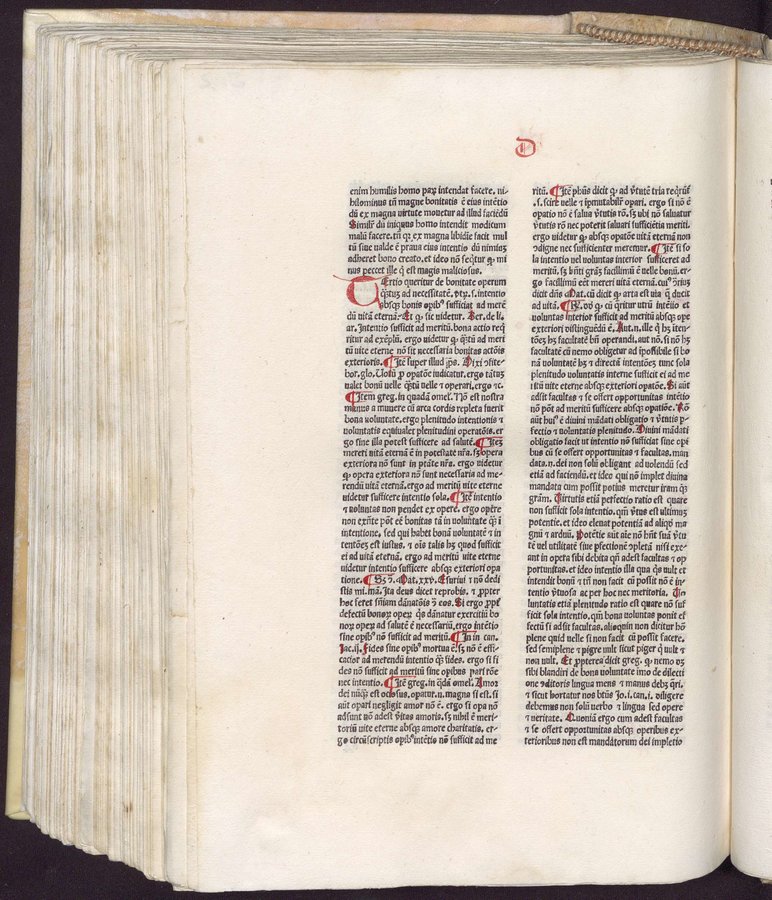 D
enim humilis homo parū intendat facere. ni-
hilominus tñ magne bonitatis ē eius intētio
dū ex magna virtute mouetur ad illud faciēdū
Similr̄ dū iniquus homo intendit modicum
malū facere. tñ qꝛ ex magna libidīe facit mul
tū siue valde ē praua eius intentio dū nimiū
adheret bono creato. et ideo nō seqͥtur qꝫ mi
nus peccet ille qͥ est magis maliciosus.
Tertio queritur de bonitate operum
qͣntuꝫ ad necessitatē. vtrꝫ .s. intentio
absqꝫ bonis opibꝰ sufficiat ad merē
dū vitā eternā. Et qꝫ sic videtur. Ber. de li.
ar. Intentio sufficit ad meritū. bona actio req
ritur ad exēplū. ergo videtur qꝫ qͣntū ad meri
tū vite eterne nō sit necessaria bonitas actōis
exterioris. ¶ Itē super illud ps. Dixi ꝯfite-
bor. glo. Uotū ꝓ opatōe iudicatur. ergo tātuꝫ
valet bonū velle qͣntū velle ⁊ operari. ergo ⁊c.
¶ Item greg. in quadā omeľ. Nō est nostra
manus a munere cū arca cordis repleta fuerit
bona voluntate. ergo plenitudo intentionis ⁊
voluntatis equivalet plenitudini operatōis. er
go sine illa potest sufficere ad salutē. ¶ Iteꝫ
mereri vitā eternā ē in potestate nr̄a. sꝫ opera
exteriora nō sunt in ptāte nr̄a. ergo videtur
qꝫ opera exteriora nō sunt necessaria ad me-
rendū vitā eternā. ergo ad meritū vite eterne
videtur sufficere intentio sola. ¶ Itē intentio
⁊ voluntas non pendet ex opere. ergo opere
non exn̄te pōt eē bonitas tā in volūtate qͣꝫ ī
intentione. sed qui habet bonā voluntatē ⁊ in
tentōeꝫ est iustus. ⁊ oīs talis hꝫ quod sufficit
ei ad vitā eternā. ergo ad meritū vite eterne
videtur intentio sufficere absqꝫ exteriori opa
tione. ¶ Sꝫ ↄ̄. Mat. xxv. Esuriui ⁊ nō dedi
stis mi. mā. Ita deus dicet reprobis. ⁊ ꝓpter
hoc feret sn̄iam dānatōis ī eos. Si ergo ꝓpt̄
defectū bonoꝝ operꝫ qͥs dānatur exercitiū bo
noꝝ operꝫ ad salutē ē necessariū. ergo intētio
sine opibꝰ nō sufficit ad meritū. ¶ Itē in can.
Jac. ij. Fides sine opibꝰ mortua ē. sꝫ nō ē effi-
cacior ad merendū intentio qͣꝫ fides. ergo si fi
des nō sufficit ad meritū sine opibus pari rōe
nec intentio. ¶ Itē greg. in qͣdā omeľ. Amor
dei nūqͣꝫ est ociosus. opatur. n. magna si est. si
aūt opari negligit amor nō ē. ergo si opa nō
adsunt nō adest v̄itas amoris. sꝫ nihil ē meri-
toriū vite eterne absqꝫ amore charitatis. er-
go circūscriptis opibꝰ intētio nō sufficit ad me
ritū. ¶ Itē phūs dicit qꝫ ad v̄tutē tria reqͥrūt̄
.s. scire velle ⁊ īpmutabilr̄ opari. ergo si nō ē
opatio nō ē salua v̄tutis rō. sꝫ vbi nō saluatur
v̄tutis rō nec poterit saluari sufficiētia meriti.
ergo videtur qꝫ absqꝫ opatōe vitā eternā non
ꝯdigne nec sufficienter meremur. ¶ Itē si so
la intentio vel voluntas interior sufficeret ad
meritū. sꝫ hn̄ti grāꝫ facillimū ē velle bonū. er-
go facillimū eēt mereri vitā eternā. cuiꝰ ↄ̄riuꝫ
dicit dn̄s Mat. cū dicit qꝫ arta est via q̄ ducit
ad vitā. ¶ Rñ. dō qꝫ cū qͥritur vtrū intētio et
voluntas interior sufficit ad meritū absqꝫ ope
exteriori distinguēdū ē. Aut. n. ille qͥ hꝫ īten-
tōeꝫ hꝫ facultatē bn̄ operandi. aut nō. si nō hꝫ
facultatē cū nemo obligetur ad īpossibile si bo
nā voluntatē hꝫ ⁊ directā intentōeꝫ tunc sola
plenitudo voluntatis interne sufficit ei ad me
ritū vite eterne absqꝫ exteriori opatōe. Si aūt
adsit facultas ⁊ se offert opportunitas. intētio
nō pōt ad meritū sufficere absqꝫ opatōe. Rō
aūt huiꝰ ē diuini mādati obligatio ⁊ v̄tutis ꝑ-
fectio ⁊ voluntatis plenitudo. Diuini mādati
obligatio facit vt intentio nō sufficiat sine opi
bus cū se offert opportunitas ⁊ facultas. man
data. n. dei non solū obligant ad volendū sed
etiā ad faciendū. et ideo qui nō implet diuina
mandata cum possit potius meretur iram qͣꝫ
grām. Uirtutis etiā perfectio ratio est quare
non sufficit sola intentio. qm̄ v̄tus est vltimuꝫ
potentie. et ideo eleuat potentiā ad aliqͥd ma
gnū ⁊ arduū. Potētie aūt aīe nō hn̄t suā v̄tu
tē vel vtilitatē siue ꝑfectionē ꝯpletā nisi exe-
ant in opera sibi debita qn̄ adest facultas ⁊ op
portunitas. et ideo intentio illa qua qͥs vult et
intendit bonū ⁊ tn̄ non facit cū possit nō ē in-
tentio v̄tuosa ac per hoc nec meritoria. Uo
luntatis etiā plenitudo ratio est quare nō suf
ficit sola intentio. qm̄ bona voluntas ponit ef
fectū si adsit facultas. alioquin non dicitur hō
plene quid velle si non facit cū possit facere.
sed semiplene ⁊ pigre vult sicut piger qͥ vult ⁊
non vult. Et ꝓpterea dicit greg. qꝫ nemo dꝫ
sibi blandiri de bona voluntate imo de dilecti
one ꝯditoris lingua mens ⁊ manus debꝫ qͥri.
⁊ sicut hortatur nos btūs Jo. i. can. i. diligere
debemus non solū verbo ⁊ lingua sed opere
⁊ veritate. Quoniā ergo cum adest facultas
⁊ se offert opportunitas absqꝫ operibus ex-
terioribus non est mandatorum dei impletio